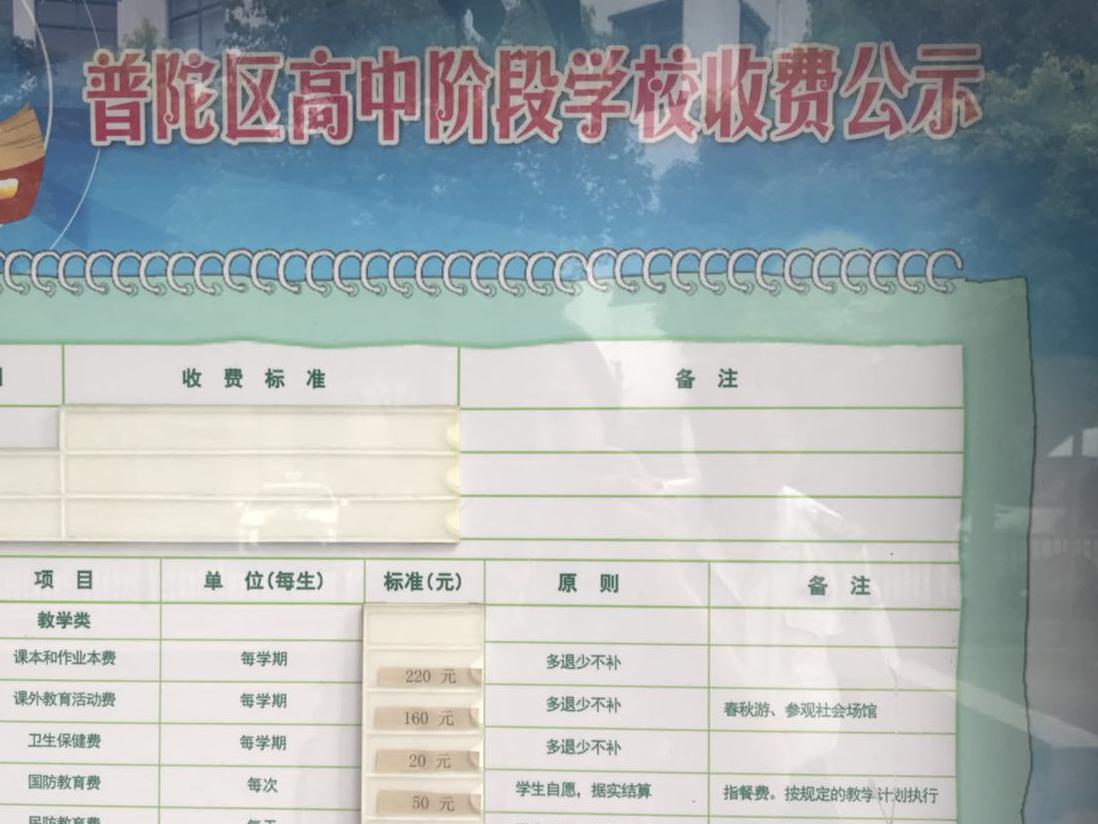 普陀区高中阶段学校收费公示
收费标准 备注
项目 单位(每生) 标准(元) 原则 备注
教学类
课本和作业本费 每学期 220元 多退少不补
课外教育活动费 每学期 160元 多退少不补 春秋游、参观社会场馆
卫生保健费 每学期 20元 多退少不补
国防教育费 每次 50元 学生自愿，据实结算 指餐费。按规定的教学计划执行